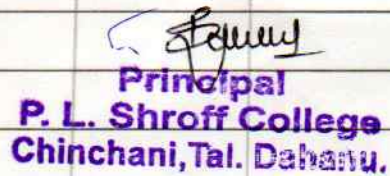 Principal
P. L. Shroff College
Chinchani, Tal. Dahanu.